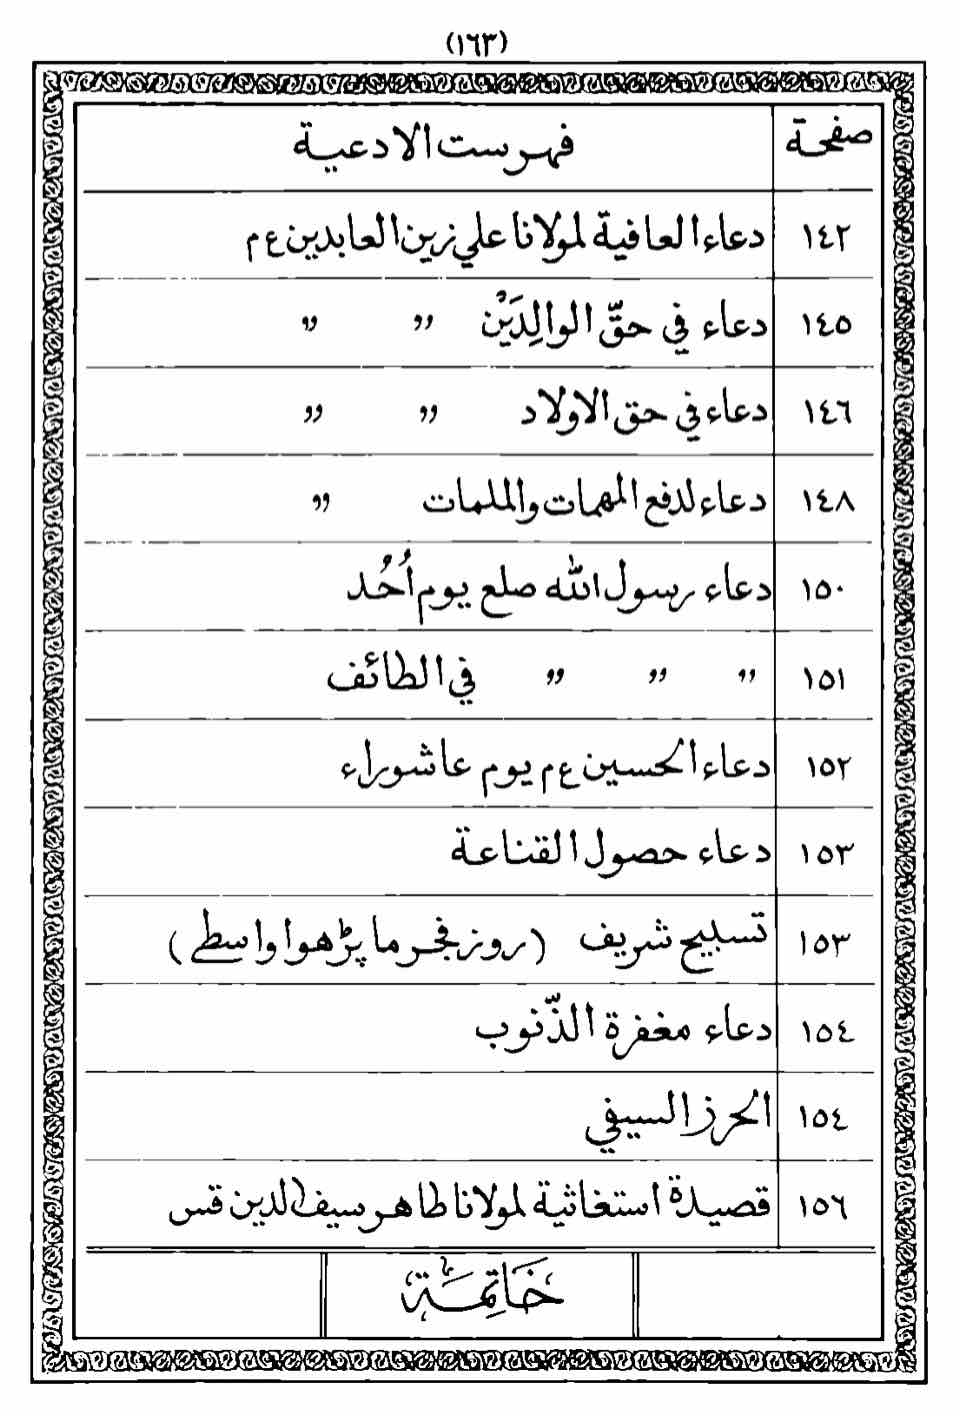 (١٦٣)
صفحة فهرست الادعية
١٤٢ دعاء العافية لمولانا علي زين العابدين ع م
١٤٥ دعاء في حقّ الوالِدَيْن " "
١٤٦ دعاء في حق الاولاد " "
١٤٨ دعاء لدفع المهمات والملمات "
١٥٠ دعاء رسول الله صلع يوم اُحُد
١٥١ " " " في الطائف
١٥٢ دعاء الحسين ع م يوم عاشوراء
١٥٣ دعاء حصول القناعة
١٥٣ تسبيح شريف (روز فجر ما پڑهوا واسطے)
١٥٤ دعاء مغفرة الذّنوب
١٥٤ الحرز السيفي
١٥٦ قصيدة استغاثية لمولانا طاهر سيف الدين قس
خَاتِمَة